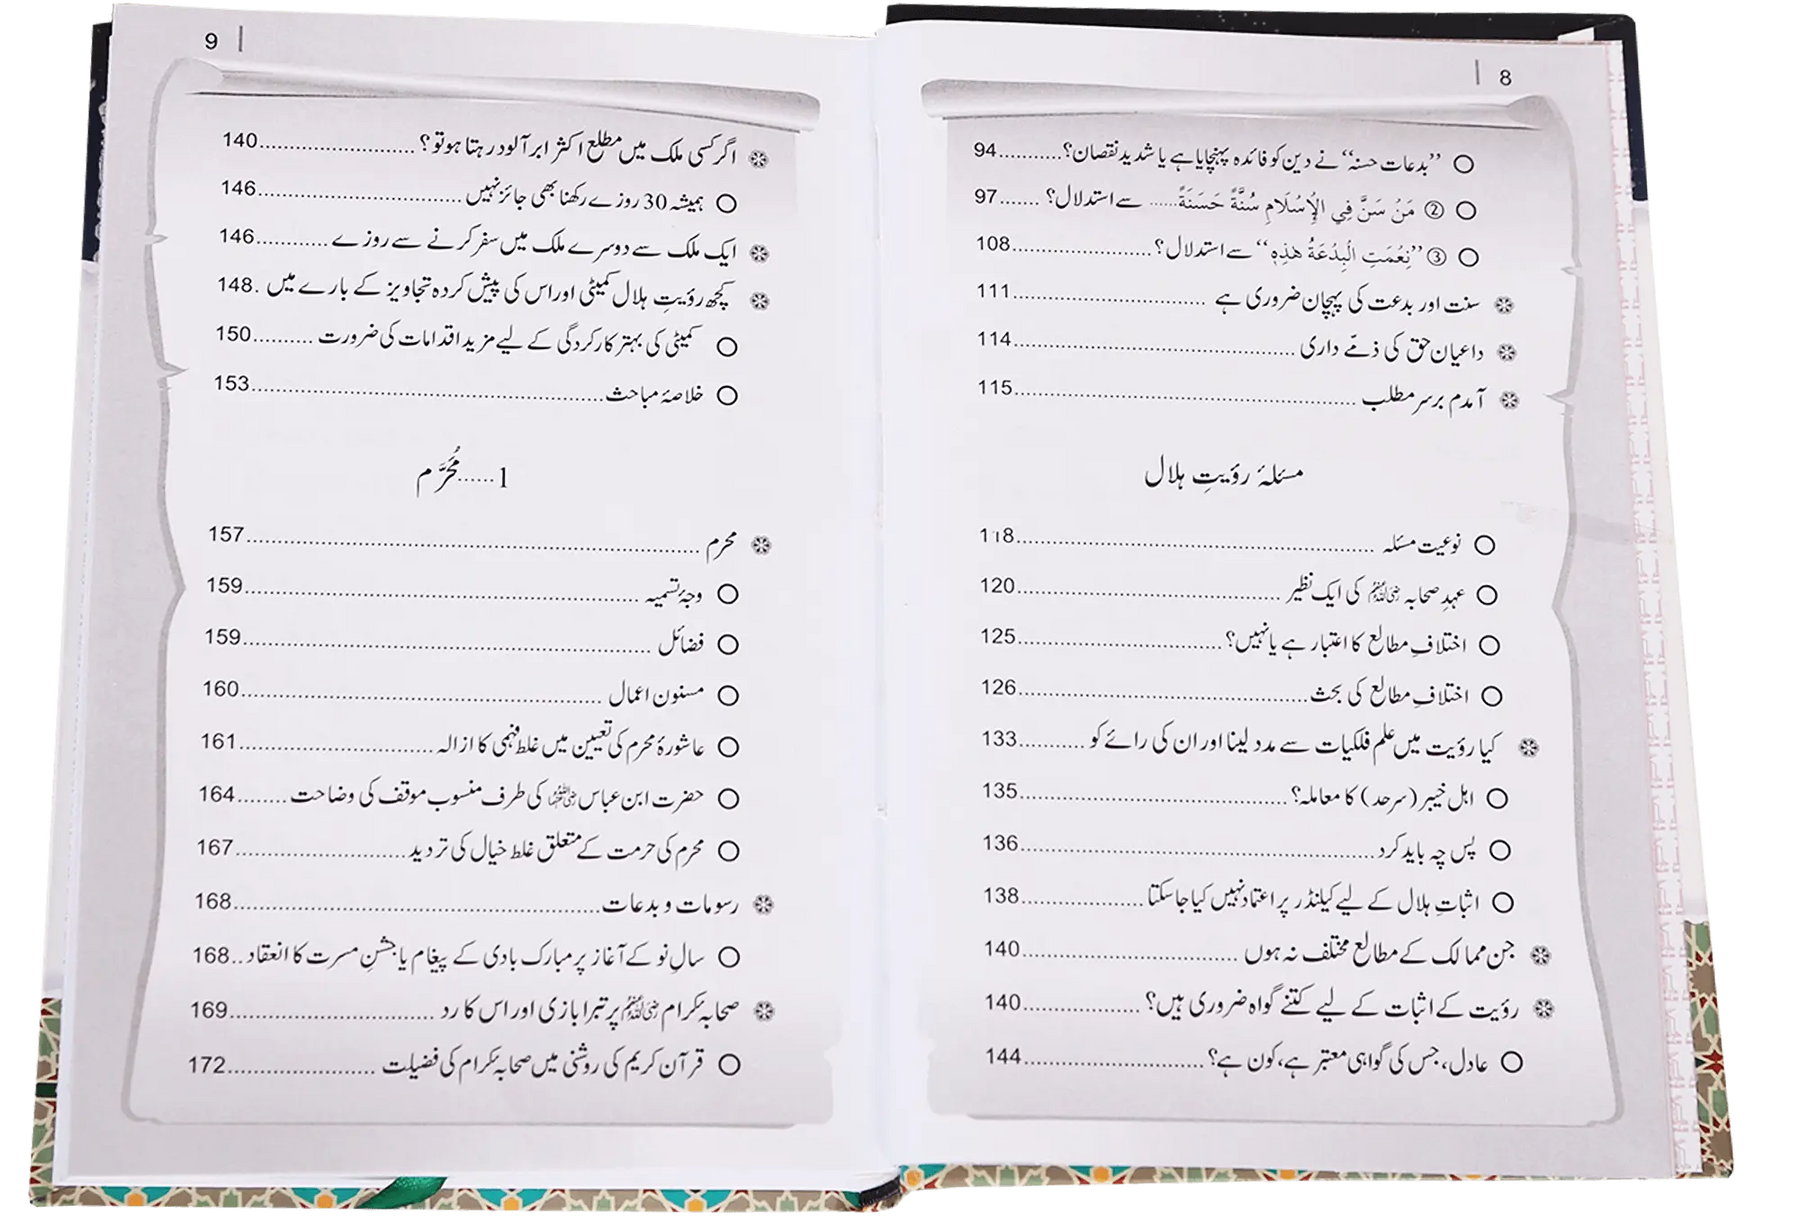 8
○ ”بدعات حسنہ“ نے دین کو فائدہ پہنچایا ہے یا شدید نقصان؟..........94
○ ② مَنْ سَنَّ فِي الْإِسْلَامِ سُنَّةً حَسَنَةً...... سے استدلال؟.......97
○ ③ ”نِعْمَتِ الْبِدْعَةُ هٰذِهٖ“ سے استدلال؟......................108
❁ سنت اور بدعت کی پہچان ضروری ہے ..............................111
❁ داعیان حق کی ذمّے داری ............................................114
❁ آمدم برسر مطلب ......................................................115
مسئلۂ رؤیتِ ہلال
○ نوعیت مسئلہ ......................................................118
○ عہدِ صحابہ رضی اللہ عنہم کی ایک نظیر ..........................................120
○ اختلافِ مطالع کا اعتبار ہے یا نہیں؟................................125
○ اختلافِ مطالع کی بحث..............................................126
❁ کیا رؤیت میں علم فلکیات سے مدد لینا اور ان کی رائے کو ..........133
○ اہل خیبر (سرحد) کا معاملہ؟..........................................135
○ پس چہ باید کرد......................................................136
○ اثباتِ ہلال کے لیے کیلنڈر پر اعتماد نہیں کیا جا سکتا....................138
❁ جن ممالک کے مطالع مختلف نہ ہوں ..................................140
❁ رؤیت کے اثبات کے لیے کتنے گواہ ضروری ہیں؟..................140
○ عادل، جس کی گواہی معتبر ہے، کون ہے؟............................144
9
❁ اگر کسی ملک میں مطلع اکثر ابر آلود رہتا ہو تو؟........................140
○ ہمیشہ 30 روزے رکھنا بھی جائز نہیں ................................146
❁ ایک ملک سے دوسرے ملک میں سفر کرنے سے روزے ............146
❁ کچھ رؤیتِ ہلال کمیٹی اور اس کی پیش کردہ تجاویز کے بارے میں .148
○ کمیٹی کی بہتر کارکردگی کے لیے مزید اقدامات کی ضرورت ..........150
○ خلاصۂ مباحث......................................................153
1......مُحَرَّم
❁ محرم ..............................................................157
○ وجۂ تسمیہ ..........................................................159
○ فضائل ..............................................................159
○ مسنون اعمال ......................................................160
○ عاشورۂ محرم کی تعیین میں غلط فہمی کا ازالہ..........................161
○ حضرت ابن عباس رضی اللہ عنہما کی طرف منسوب موقف کی وضاحت........164
○ محرم کی حرمت کے متعلق غلط خیال کی تردید........................167
❁ رسومات و بدعات..................................................168
○ سالِ نو کے آغاز پر مبارک بادی کے پیغام یا جشنِ مسرت کا انعقاد..168
❁ صحابۂ کرام رضی اللہ عنہم پر تبرا بازی اور اس کا رد ............................169
○ قرآن کریم کی روشنی میں صحابۂ کرام کی فضیلت ....................172